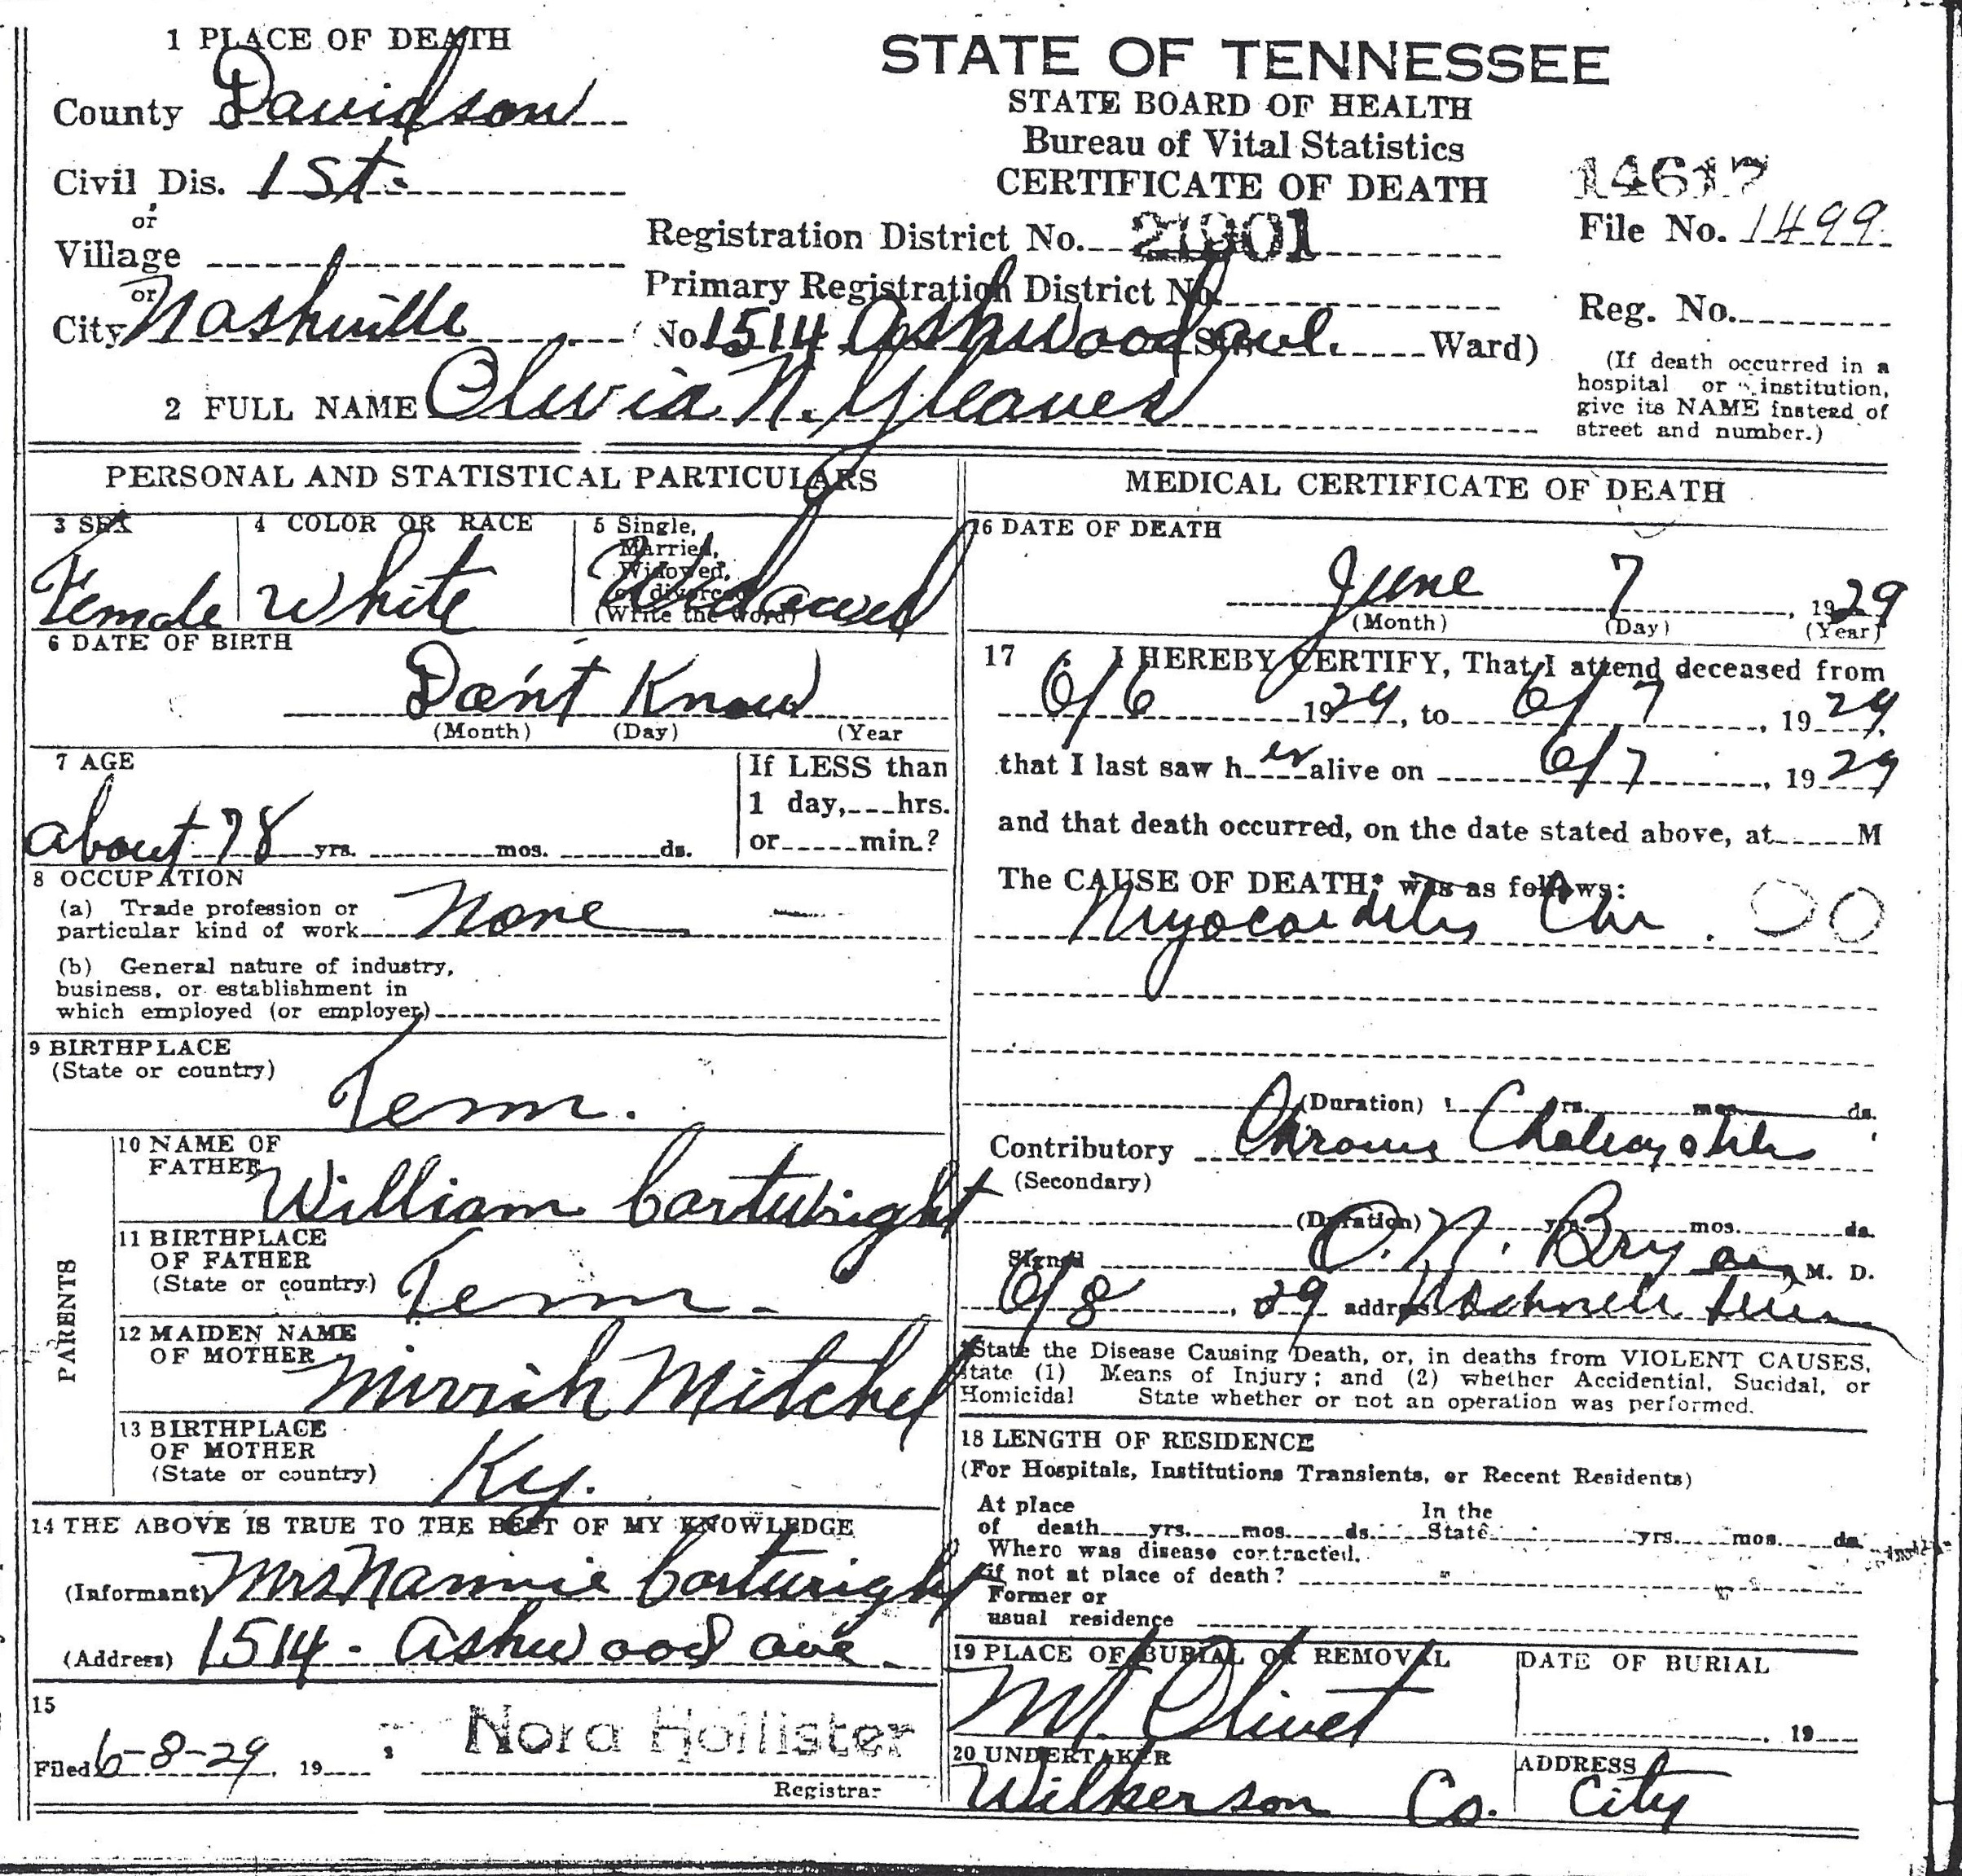 1 PLACE OF DEATH
County Davidson
Civil Dis. 1st.
or
Village
or
City Nashville
STATE OF TENNESSEE
STATE BOARD OF HEALTH
Bureau of Vital Statistics
CERTIFICATE OF DEATH
Registration District No. 21901
Primary Registration District No.
(No. 1514 Ashwood St. ave. Ward)
14617
File No. 1499
Reg. No.
(If death occurred in a
hospital or institution,
give its NAME instead of
street and number.)
2 FULL NAME Olivia N. Gleaves
PERSONAL AND STATISTICAL PARTICULARS
3 SEX
Female
4 COLOR OR RACE
White
5 Single,
Married,
Widowed,
or divorced
(Write the word)
Widowed
6 DATE OF BIRTH
Don't Know
(Month) (Day) (Year
7 AGE
about 78 yrs. mos. ds.
If LESS than
1 day, hrs.
or min.?
8 OCCUPATION
(a) Trade profession or
particular kind of work None
(b) General nature of industry,
business, or establishment in
which employed (or employer)
9 BIRTHPLACE
(State or country)
Tenn.
PARENTS
10 NAME OF
FATHER
William Cartwright
11 BIRTHPLACE
OF FATHER
(State or country) Tenn.
12 MAIDEN NAME
OF MOTHER
Mitchel
13 BIRTHPLACE
OF MOTHER
(State or country) Ky.
14 THE ABOVE IS TRUE TO THE BEST OF MY KNOWLEDGE
(Informant) Mrs Nannie Cartwright
(Address) 1514 - Ashwood ave.
15
Filed 6-8-29, 19 Nora Hollister
Registrar
MEDICAL CERTIFICATE OF DEATH
16 DATE OF DEATH
June 7, 1929
(Month) (Day) (Year)
17 I HEREBY CERTIFY, That I attend deceased from
6/6 1929, to 6/7, 1929
that I last saw her alive on 6/7, 1929
and that death occurred, on the date stated above, at M
The CAUSE OF DEATH* was as follows:
Myocarditis Chr. 90
(Duration) yrs. mos. ds.
Contributory Chronic Cholecystitis
(Secondary)
(Duration) yrs. mos. ds.
Signed O. N. Bryan M. D.
6/8, 29 address Nashville Tenn
*State the Disease Causing Death, or, in deaths from VIOLENT CAUSES,
state (1) Means of Injury; and (2) whether Accidential, Sucidal, or
Homicidal State whether or not an operation was performed.
18 LENGTH OF RESIDENCE
(For Hospitals, Institutions Transients, or Recent Residents)
At place In the
of death yrs. mos. ds. State yrs. mos. ds.
Where was disease contracted.
if not at place of death?
Former or
usual residence
19 PLACE OF BURIAL OR REMOVAL
Mt. Olivet
DATE OF BURIAL
, 19
20 UNDERTAKER
Wilkerson Co.
ADDRESS
City